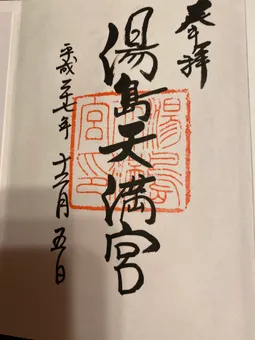 奉拝
湯島天満宮
平成二十七年 十二月 五日